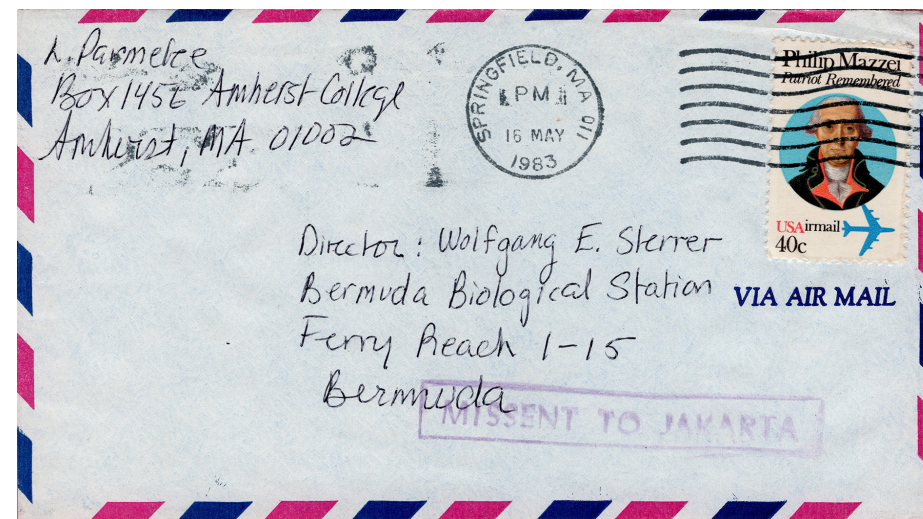 L. Parmelee
Box 1456 Amherst College
Amherst, MA 01002
SPRINGFIELD, MA 011
PM
16 MAY
1983
Philip Mazzei
Patriot Remembered
USAirmail
40c
VIA AIR MAIL
Director: Wolfgang E. Sterrer
Bermuda Biological Station
Ferry Reach 1-15
Bermuda
MISSENT TO JAKARTA